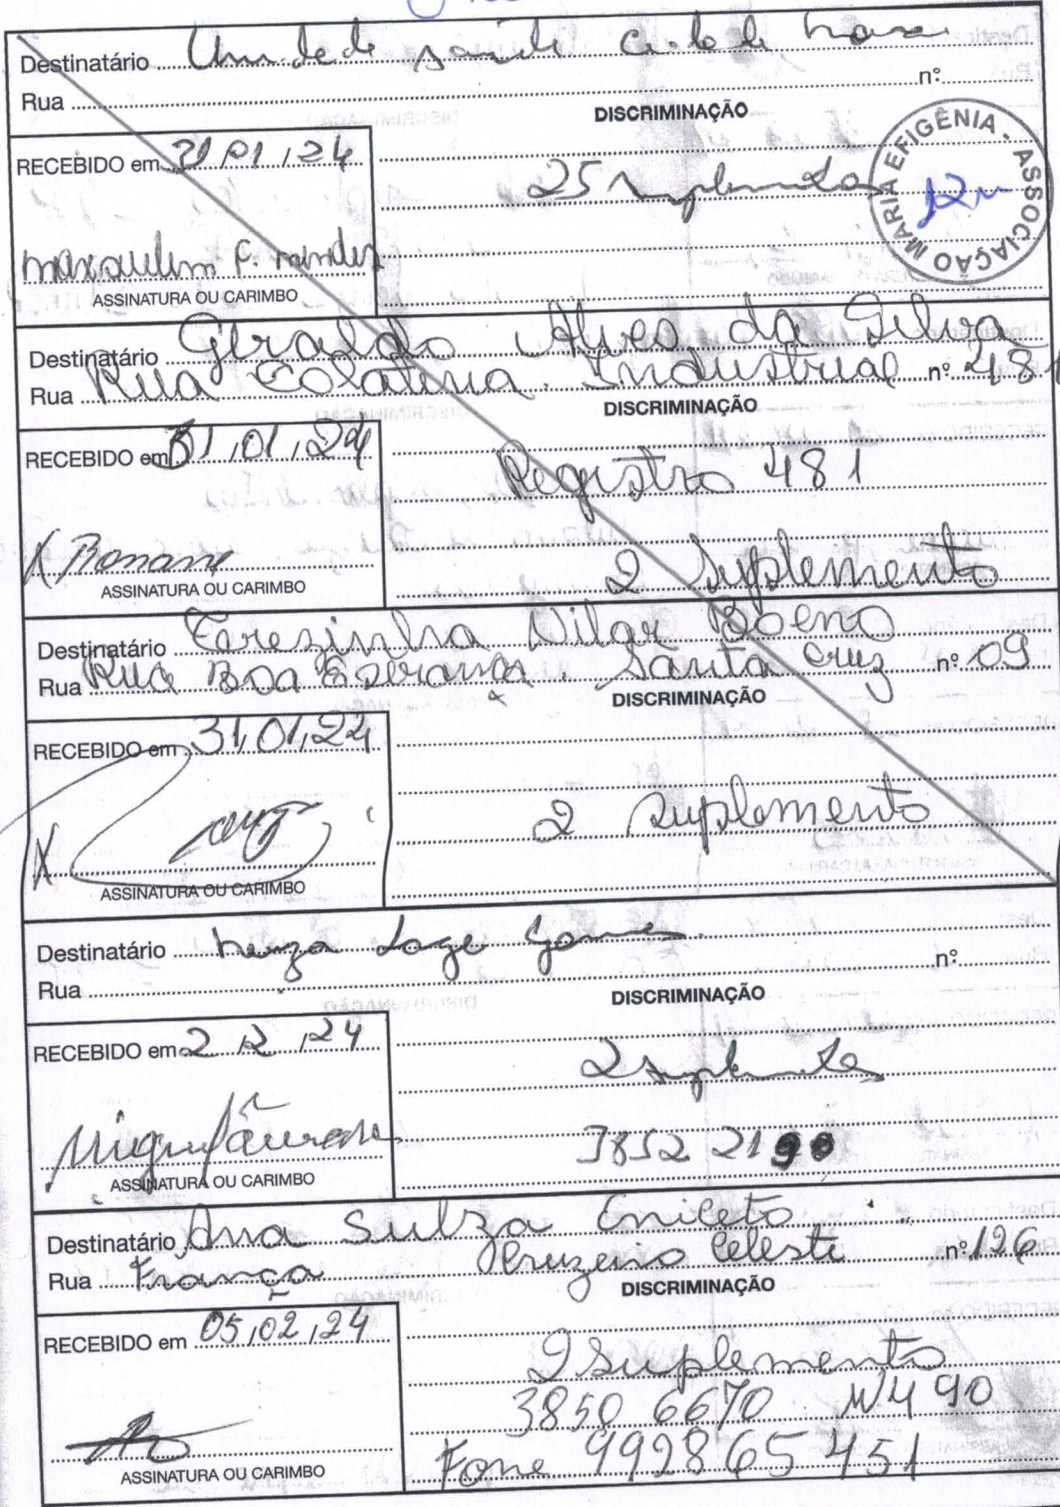 Destinatário saúde
Rua nº
DISCRIMINAÇÃO
RECEBIDO em 31,01,24
25
ASSOCIAÇÃO MARIA EFIGÊNIA
F. mendes
ASSINATURA OU CARIMBO
Destinatário Geraldo Alves da Silva
Rua Rua Colatina. Industrial nº 481
DISCRIMINAÇÃO
RECEBIDO em 31,01,24
Registro 481
X
2 Suplemento
ASSINATURA OU CARIMBO
Destinatário Terezinha Vilar Boeno
Rua Rua Boa Esperança. Santa Cruz nº 09
DISCRIMINAÇÃO
RECEBIDO em 31,01,24
2 Suplemento
X
ASSINATURA OU CARIMBO
Destinatário Gomes
Rua nº
DISCRIMINAÇÃO
RECEBIDO em 2 , 2 , 24
2
3852 2190
ASSINATURA OU CARIMBO
Destinatário Ana Sulza Eniceto
Rua França Cruzeiro Celeste nº 126
DISCRIMINAÇÃO
RECEBIDO em 05,02,24
2 Suplemento
3850 6670 490
Fone 992865451
ASSINATURA OU CARIMBO